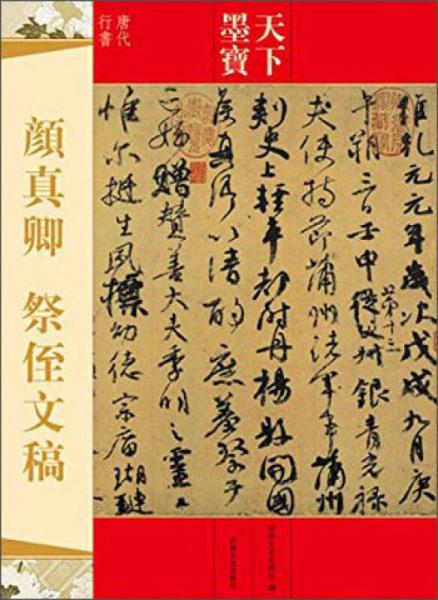 天下
墨寶
唐代
行書
顔真卿 祭侄文稿
維乾元元年歲次戊戌九月庚
午朔三日壬申第十三從父叔銀青光祿
夫使持節蒲州諸軍事蒲州
刺史上輕車都尉丹楊縣開國
侯真卿以清酌庶羞祭于
亡姪贈贊善大夫季明之靈曰
惟爾挺生夙標幼德宗廟瑚璉